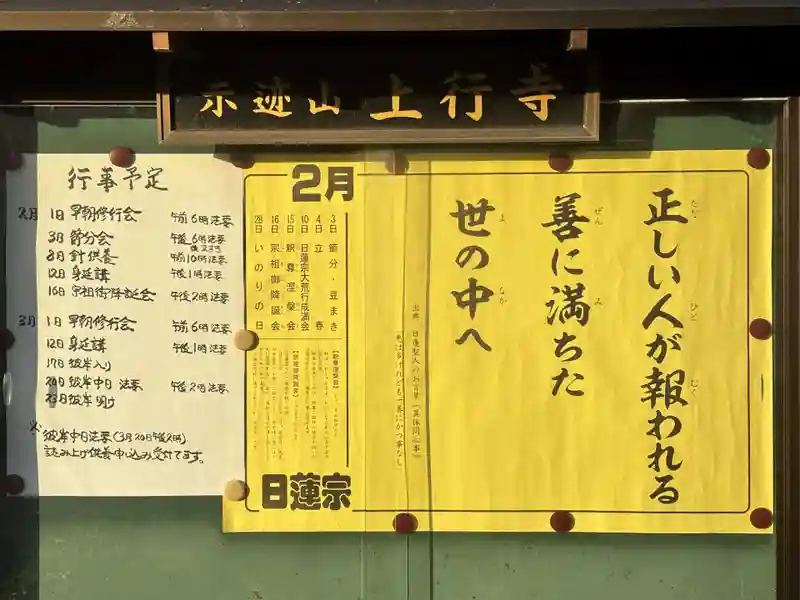 示迹山 上行寺
行事予定
2月 1日 早朝修行会 午前6時法要
3日 節分会 午後6時法要
8日 針供養 午前10時法要
12日 身延講 午後1時法要
16日 宗祖御降誕会 午後2時法要
3月 1日 早朝修行会 午前6時法要
12日 身延講 午後1時法要
17日 彼岸入り
20日 彼岸中日 法要 午後2時法要
23日 彼岸明け
※ 彼岸中日法要(3月20日午後2時)
読み上げ供養申し込み受付てます。
正しい人が報われる
善に満ちた
世の中へ
出典 日蓮聖人のお言葉『異体同心事』
悪は多けれども一善にかつ事なし
2月
3日 節分・豆まき
4日 立春
10日 日蓮宗大荒行成満会
15日 釈尊涅槃会
16日 宗祖御降誕会
28日 いのりの日
【釈尊涅槃会】
【宗祖御降誕会】
日蓮宗